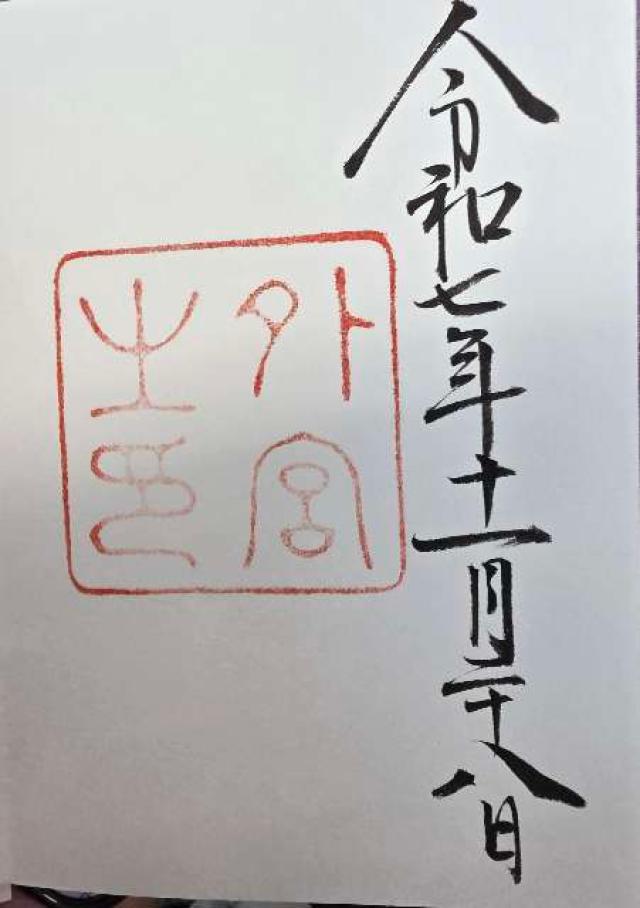 令和七年十一月二十八日
外宮
之印